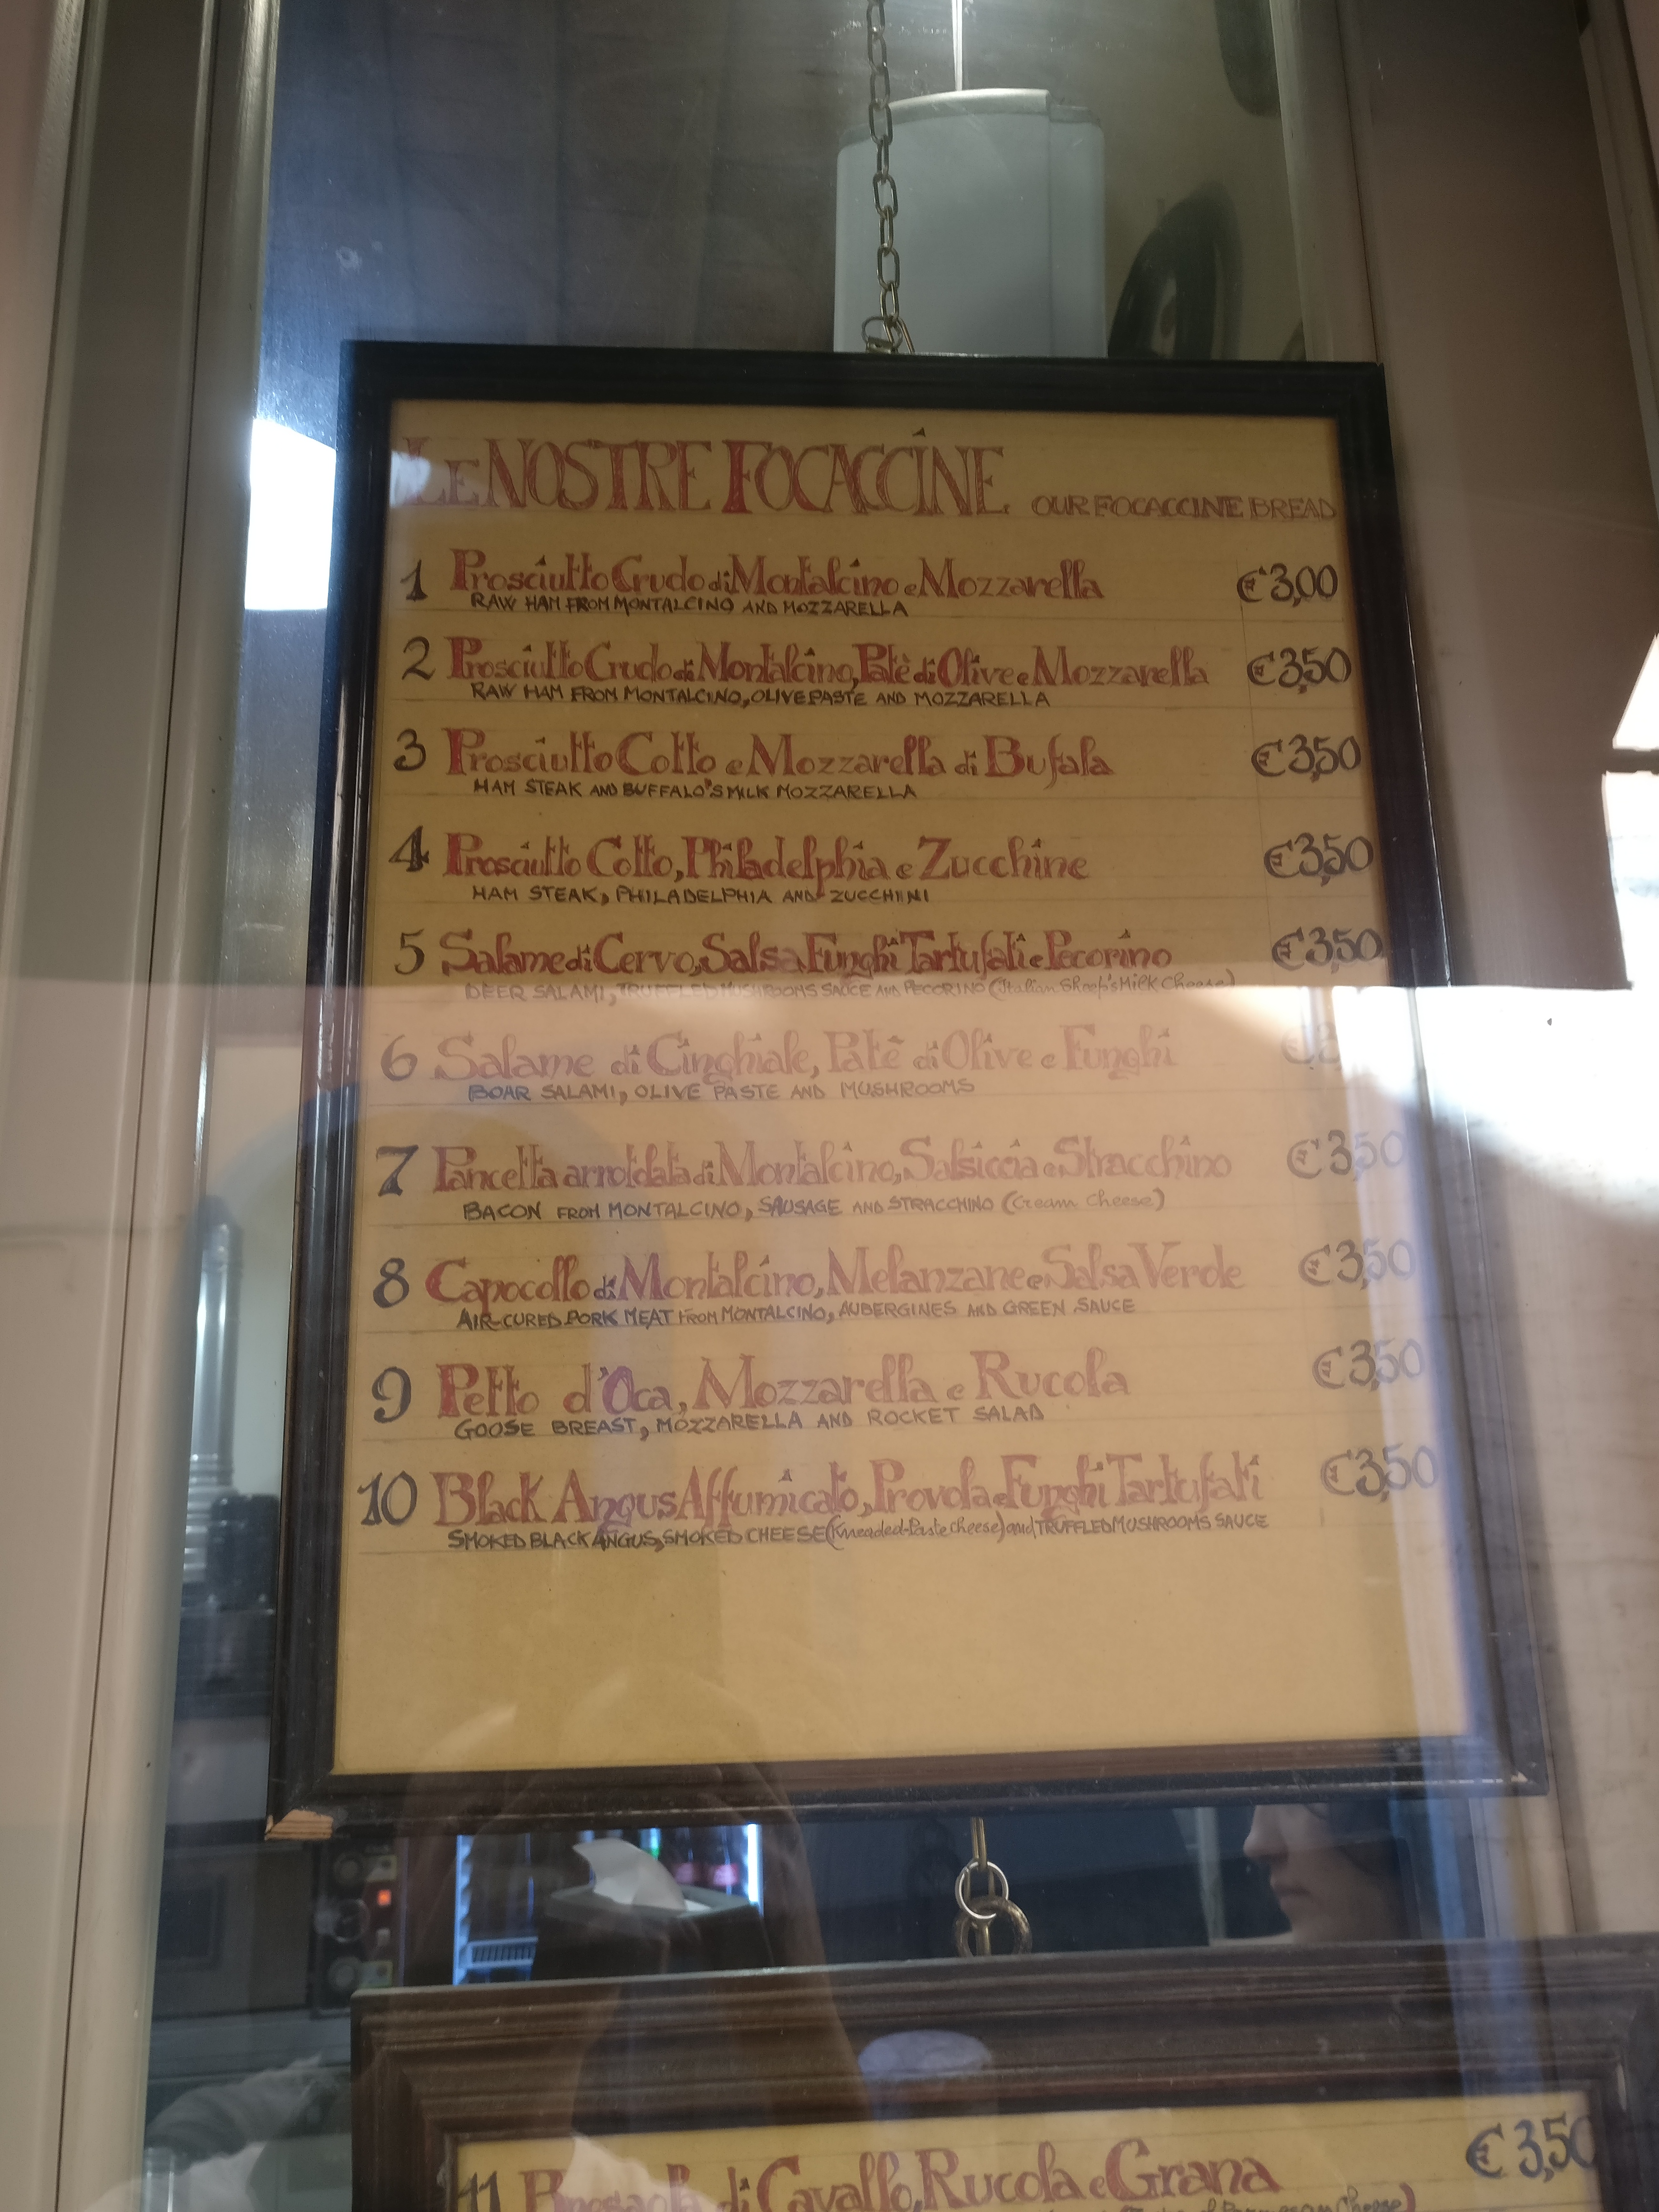 LE NOSTRE FOCACCINE OUR FOCACCINE BREAD
1 Prosciutto Crudo di Montalcino e Mozzarella €3,00
RAW HAM FROM MONTALCINO AND MOZZARELLA
2 Prosciutto Crudo di Montalcino, Patè di Olive e Mozzarella €3,50
RAW HAM FROM MONTALCINO, OLIVE PASTE AND MOZZARELLA
3 Prosciutto Cotto e Mozzarella di Bufala €3,50
HAM STEAK AND BUFFALO'S MILK MOZZARELLA
4 Prosciutto Cotto, Philadelphia e Zucchine €3,50
HAM STEAK, PHILADELPHIA AND ZUCCHINI
5 Salame di Cervo, Salsa Funghi Tartufati e Pecorino €3,50
DEER SALAMI, TRUFFLED MUSHROOMS SAUCE AND PECORINO (Italian Sheep's Milk Cheese)
6 Salame di Cinghiale, Patè di Olive e Funghi
BOAR SALAMI, OLIVE PASTE AND MUSHROOMS
7 Pancetta arrotolata di Montalcino, Salsiccia e Stracchino €3,50
BACON FROM MONTALCINO, SAUSAGE AND STRACCHINO (Cream Cheese)
8 Capocollo di Montalcino, Melanzane e Salsa Verde €3,50
AIR-CURED PORK MEAT FROM MONTALCINO, AUBERGINES AND GREEN SAUCE
9 Petto d'Oca, Mozzarella e Rucola €3,50
GOOSE BREAST, MOZZARELLA AND ROCKET SALAD
10 Black Angus Affumicato, Provola e Funghi Tartufati €3,50
SMOKED BLACK ANGUS, SMOKED CHEESE (Kneaded-Paste Cheese) and TRUFFLED MUSHROOMS SAUCE
11 Bresaola di Cavallo, Rucola e Grana €3,50
Cheese)